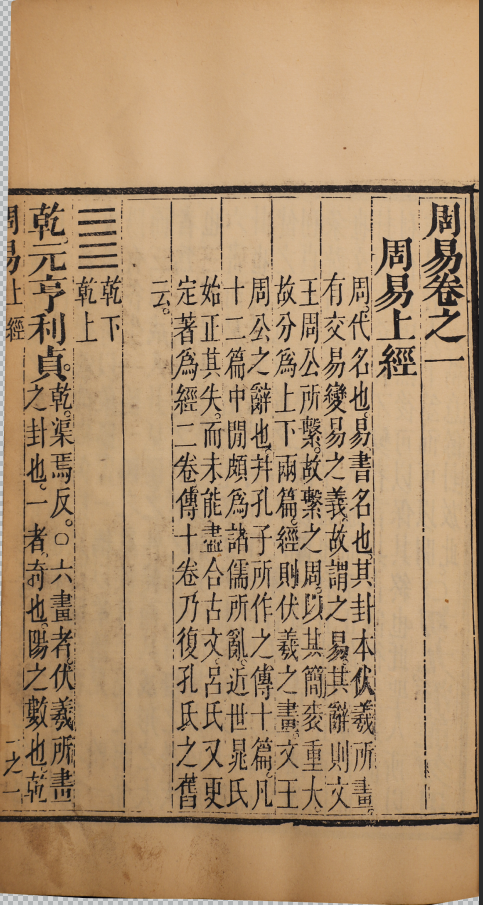 周易卷之一
周易上經
周。代名也。易。書名也。其卦本伏羲所畫。
有交易變易之義。故謂之易。其辭則文
王周公所繫。故繫之周。以其簡袠重大。
故分爲上下兩篇。經則伏羲之畫。文王
周公之辭也。幷孔子所作之傳十篇。凡
十二篇。中閒頗爲諸儒所亂。近世晁氏
始正其失。而未能盡合古文。呂氏又更
定著爲經二卷傳十卷。乃復孔氏之舊
云。
乾下
乾上
乾元亨利貞。乾。渠焉反。○六畫者。伏羲所畫
之卦也。一者。奇也。陽之數也。乾
周易上經
之一